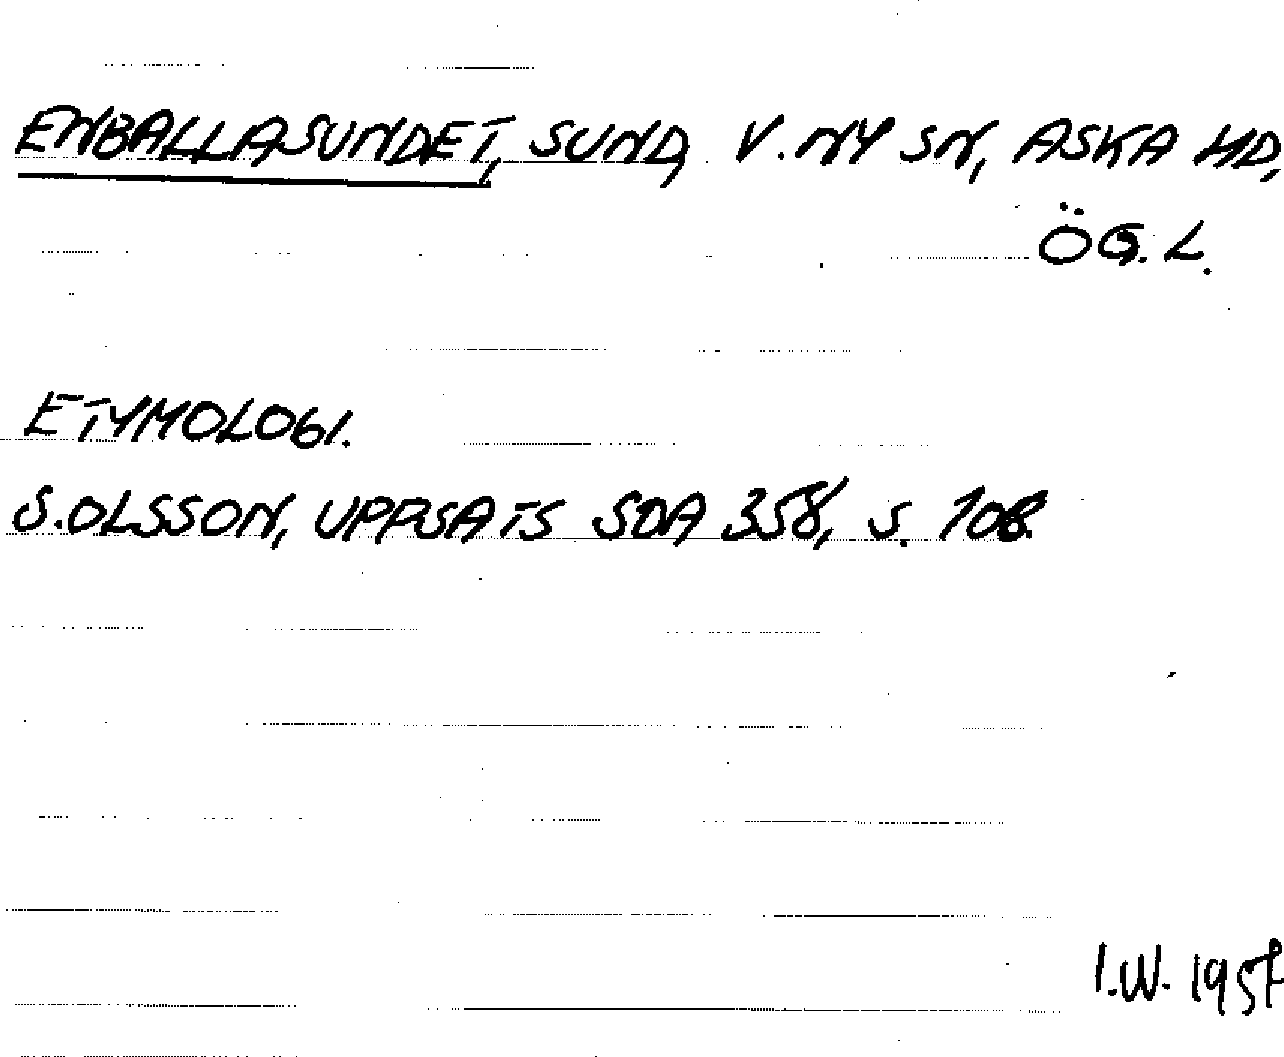 ENBALLASUNDET, SUND, V. NY SN, ASKA HD,
ÖG. L.
ETYMOLOGI.
S. OLSSON, UPPSATS SOA 358, S. 108.
I.W.